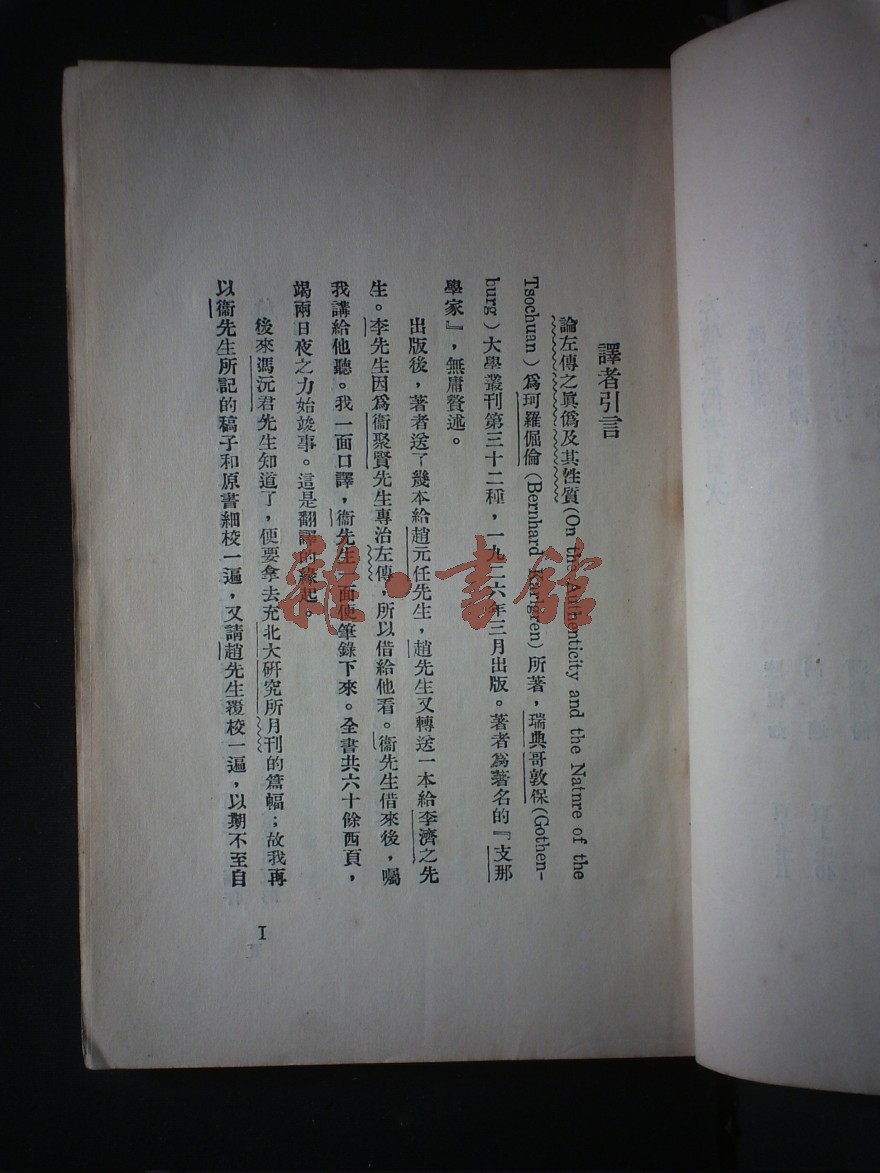 譯者引言
論左傳之眞僞及其性質(On the Authenticity and the Natnre of the
Tsochuan)爲珂羅倔倫(Bernhard Karlgren)所著，瑞典哥敦保(Gothen-
burg)大學叢刊第三十二種，一九二六年三月出版。著者爲著名的『支那
學家』，無庸贅述。
出版後，著者送了幾本給趙元任先生，趙先生又轉送一本給李濟之先
生。李先生因爲衞聚賢先生專治左傳，所以借給他看。衞先生借來後，囑
我講給他聽。我一面口譯，衞先生一面便筆錄下來。全書共六十餘西頁，
竭兩日夜之力始竣事。這是翻譯的緣起。
後來馮沅君先生知道了，便要拿去充北大研究所月刊的篇幅；故我再
以衞先生所記的稿子和原書細校一遍，又請趙先生覆校一遍，以期不至自
I
雜·書館